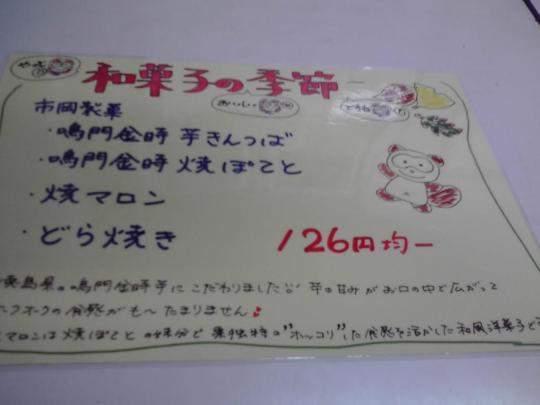 和菓子の季節
おいしい
市岡製菓
・鳴門金時 芋きんつば
・鳴門金時 焼ぽてと
・焼マロン
・どら焼き 126円均一
島県の鳴門金時芋にこだわりました 芋の甘みがお口の中で広がって
クホクの食感がも〜たまりません♪
マロンは焼ぽてと の味分と 栗独特の"ホッコリ"した食感を活かした 和風洋菓子